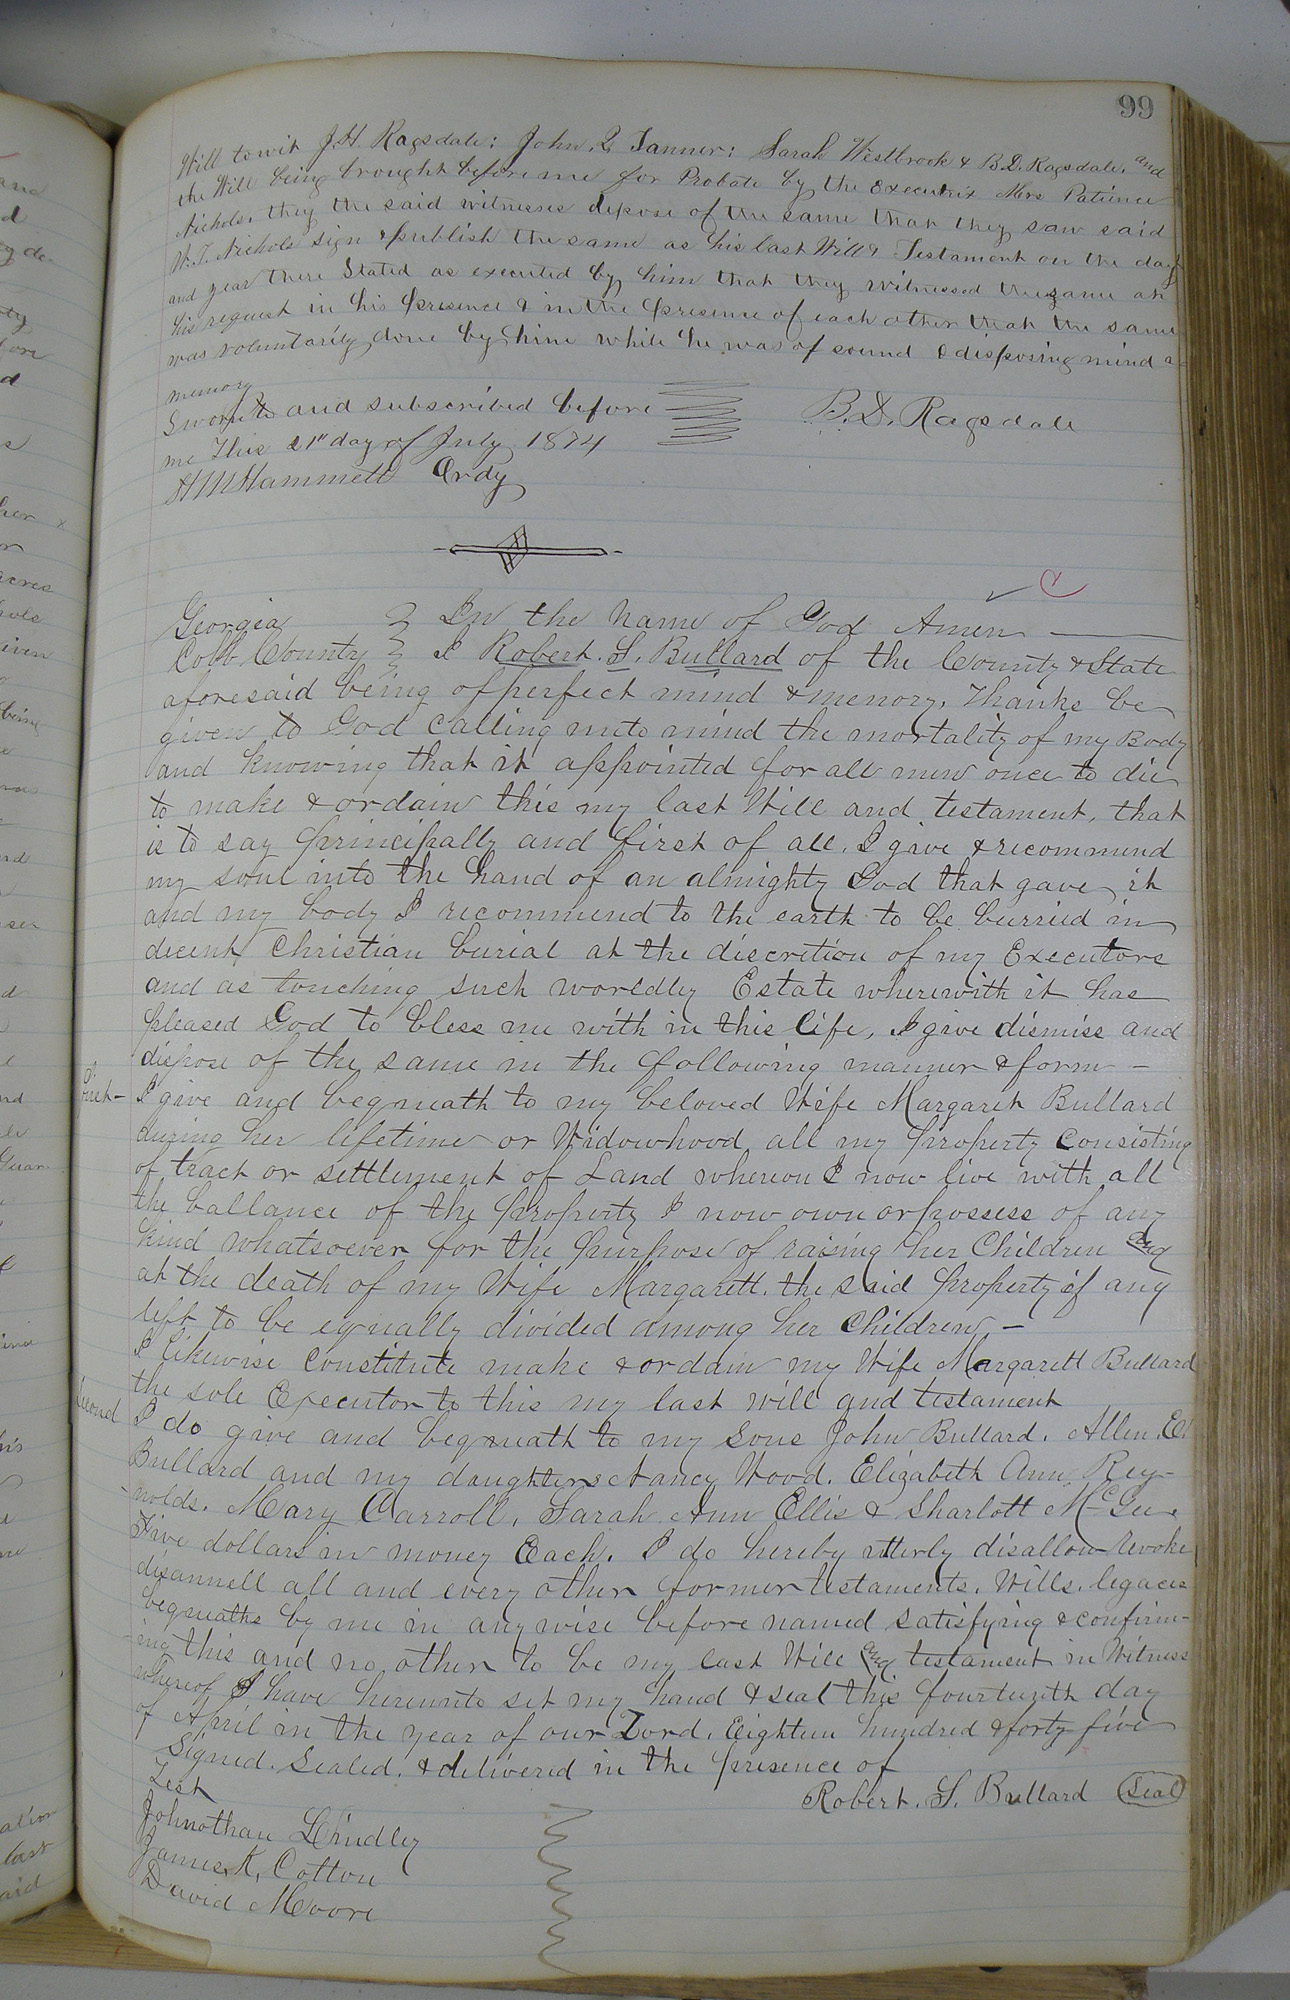 99
Will towit J.H. Ragsdale; John. Q. Tanner; Sarah Westbrook & B.D. Ragsdale. and
the Will being brought before me for Probate by the executrix Mrs Patience
Nichols. they the said witnesses depose of the same that they saw said
W.T. Nichols sign & publish the same as his last Will & Testament on the day
and year there Stated as executed by him that they witnessed the same at
his request in his presence & in the presence of each other that the same
was voluntarily done by him while he was of sound & disposing mind
memory
Sworn to and subscribed before
B.D. Ragsdale
me This 21st day of July 1874
H M Hammett Ordy
Georgia In the name of God Amen
Cobb County I Robert. S. Bullard of the County & State
aforesaid being of perfect mind & memory, Thanks be
given to God calling unto mind the mortality of my Body
and knowing that it appointed for all men once to die
to make & ordain this my last Will and testament, that
is to say principally and first of all. I give & recommend
my soul into the hand of an almighty God that gave it
and my body I recommend to the earth to be burried in
decent Christian burial at the discretion of my Executors
and as touching such worldly Estate wherewith it has
pleased God to bless me with in this life, I give dismiss and
dispose of the same in the following manner & form -
I give and bequeath to my beloved Wife Margaret Bullard
during her lifetime or Widowhood all my property consisting
of tract or settlement of Land whereon I now live with all
the ballance of the property I now own or possess of any
kind whatsoever for the purpose of raising her Children and
at the death of my Wife Margarett. the said property if any
left to be equally divided among her Children -
I likewise Constitute make & ordain my Wife Margarett Bullard
the sole Executor to this my last will and testament
Second I do give and bequeath to my sons John Bullard. Allen. E.
Bullard and my daughters Nancy Wood. Elizabeth Ann Rey-
nolds. Mary Carroll, Sarah Ann Ellis & Sharlott McGee
Five dollars in money Each. I do hereby utterly disallow Revoke
disannell all and every other former testaments. Wills. legacies
bequeaths by me in any wise before named satisfying & confirm-
-ing this and no other to be my last Will and testament in Witness
whereof I have hereunto set my hand & seal this fourteenth day
of April in the year of our Lord. Eighteen hundred & forty five
Signed. Sealed. & delivered in the presence of
Test
Robert. S. Bullard Seal
Johnothan Lindley
James. K. Cotton
David Moore